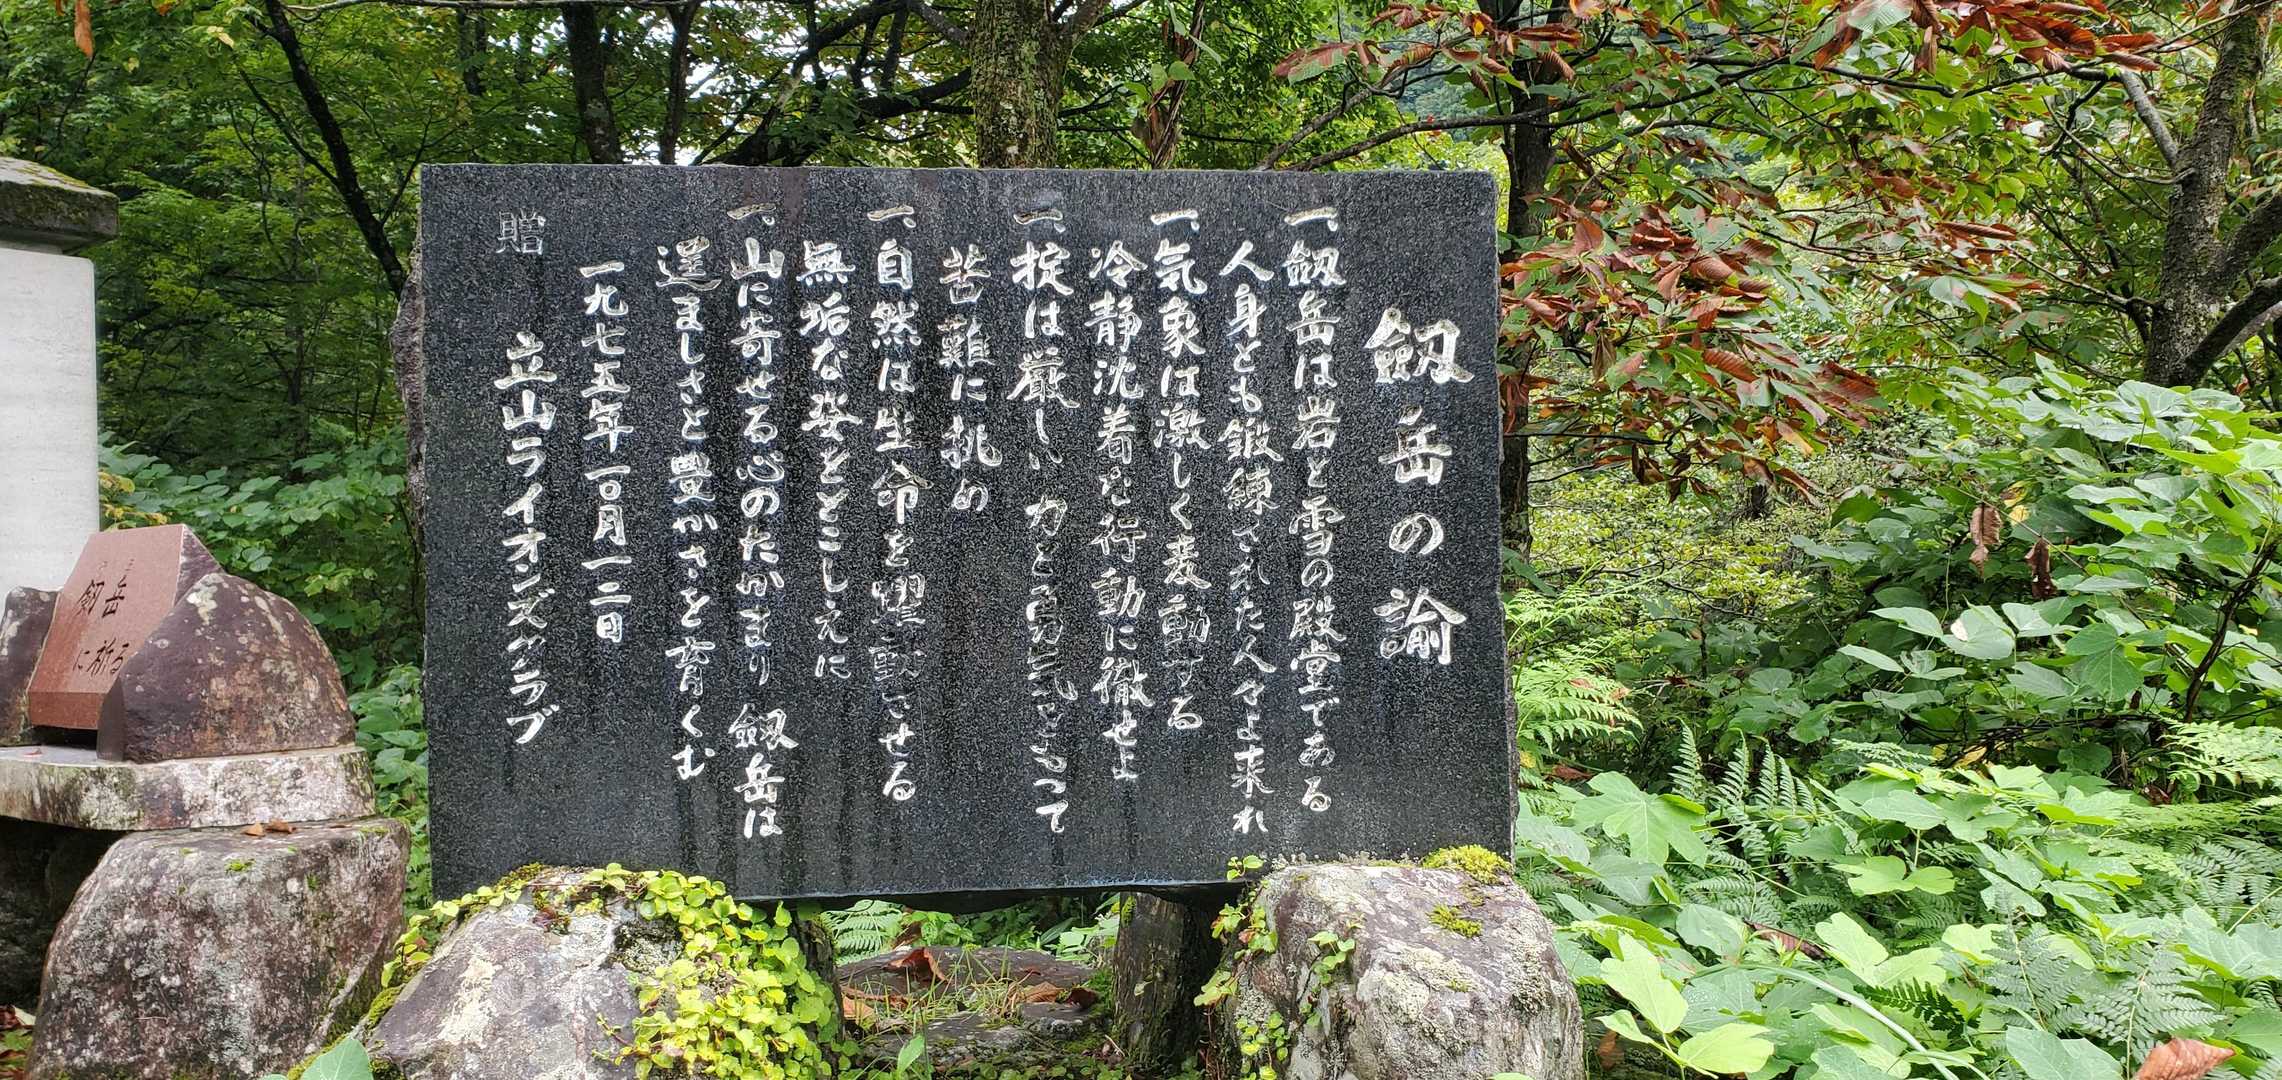 劔岳の諭
一、劔岳は岩と雪の殿堂である
人身とも鍛練された人々よ来れ
一、気象は激しく変動する
冷静沈着な行動に徹せよ
一、掟は厳しい 力と勇気をもって
苦難に挑め
一、自然は生命を躍動させる
無垢な姿をとこしえに
一、山に寄せる心のたかまり 劔岳は
逞ましさと豊かさを育くむ
一九七五年一〇月一二日
贈 立山ライオンズクラブ
劔岳
に祈る